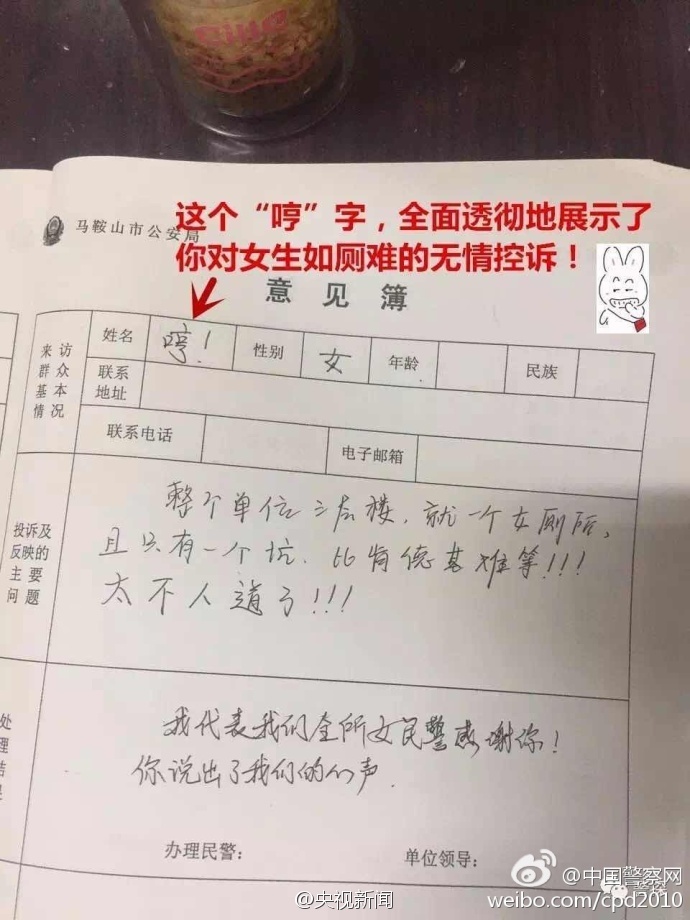 马鞍山市公安局
这个“哼”字，全面透彻地展示了
你对女生如厕难的无情控诉！
意见簿
来访
群众
基本
情况
姓名 哼！ 性别 女 年龄 民族
联系
地址
联系电话 电子邮箱
投诉及
反映的
主要
问题
整个单位三层楼，就一个女厕所，
且只有一个坑．比肯德基难等！！！
太不人道了！！！
处
理
结
果
我代表我们全所女民警感谢你！
你说出了我们的心声．
办理民警： 单位领导：
@央视新闻
@中国警察网
weibo.com/cpd2010